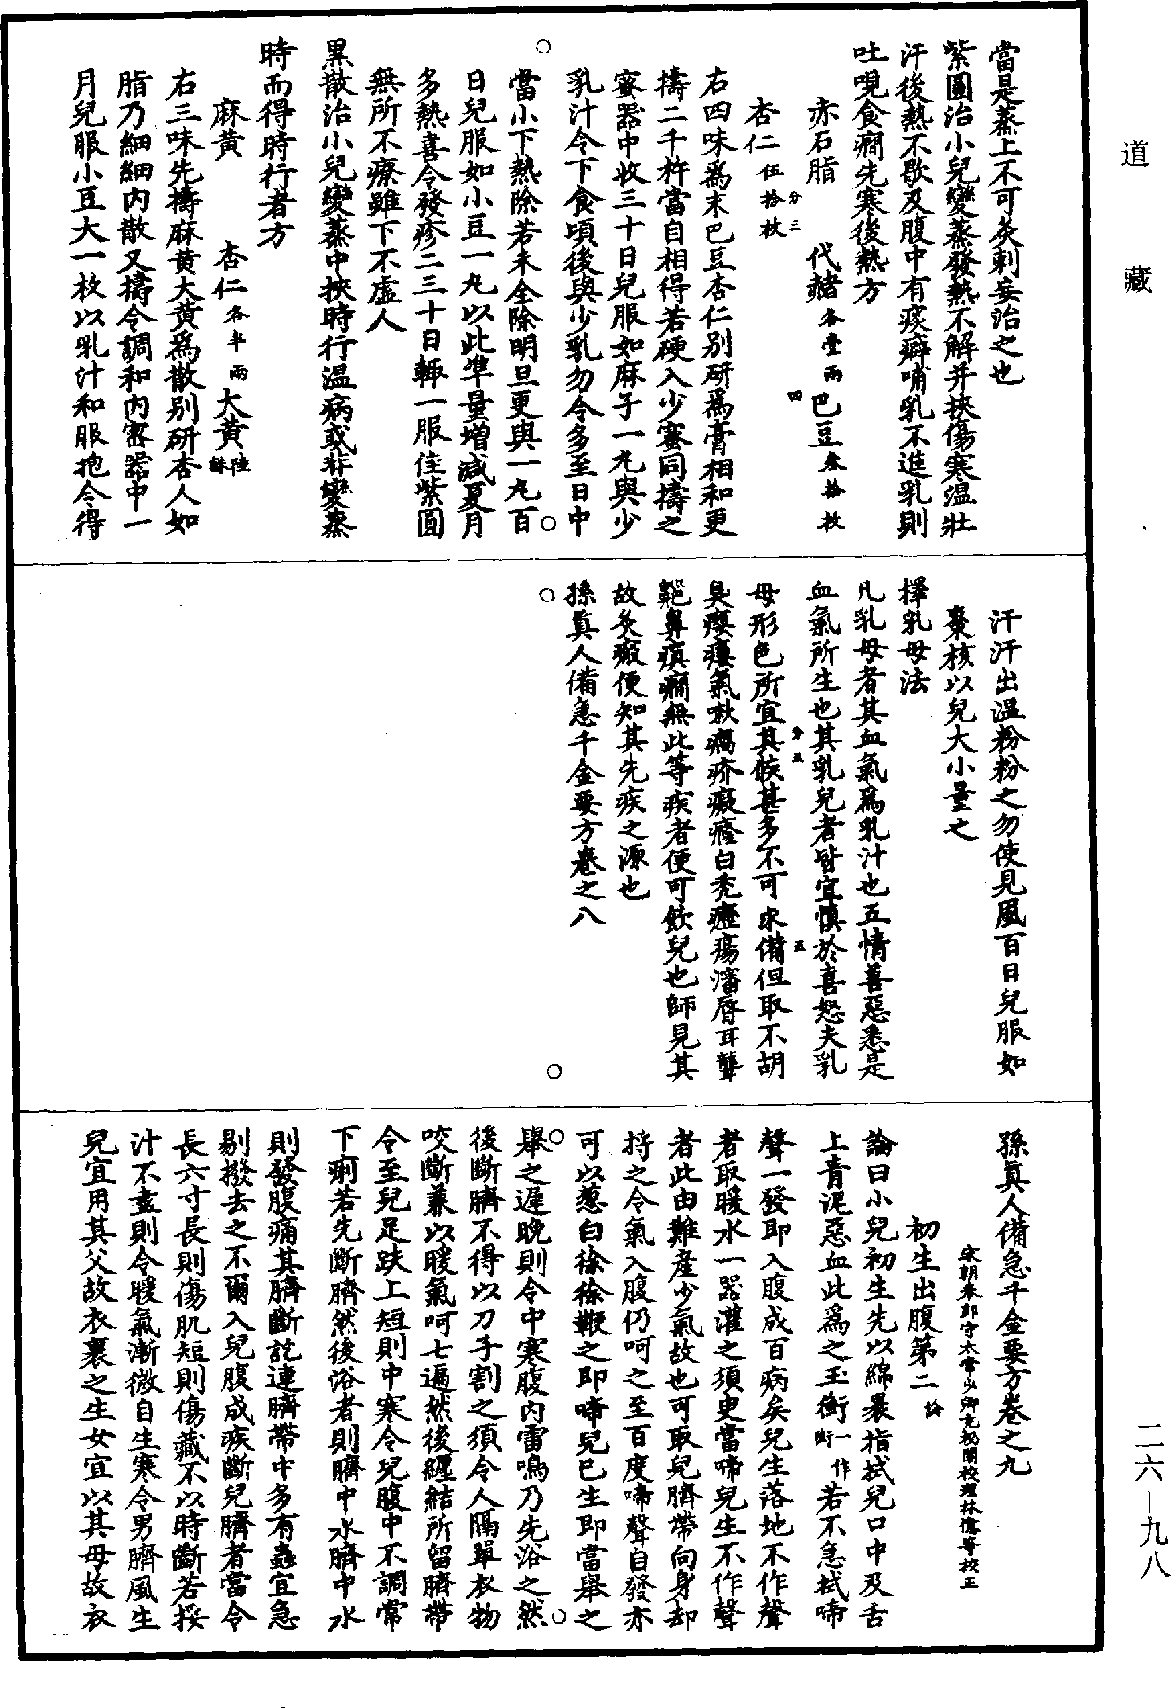 道藏
當是蒸上不可灸刺妄治之也
紫圓治小兒變蒸發熱不解并挾傷寒温壯
汗後熱不歇及腹中有痰癖哺乳不進乳則
吐哯食癇先寒後熱方
赤石脂 代赭各壹兩 巴豆叁拾枚
杏仁伍拾枚
右四味爲末巴豆杏仁别研爲膏相和更
擣二千杵當自相得若硬入少蜜同擣之
蜜器中收三十日兒服如麻子一丸與少
乳汁令下食頃後與少乳勿令多至日中
當小下熱除若未全除明旦更與一丸百
日兒服如小豆一丸以此準量增減夏月
多熱喜令發疹二三十日輒一服佳紫圓
無所不療雖下不虛人
黑散治小兒變蒸中挾時行温病或非變蒸
時而得時行者方
麻黄 杏仁各半兩 大黄陸銖
右三味先擣麻黄大黄爲散别研杏人如
脂乃細細内散又擣令調和内密器中一
月兒服小豆大一枚以乳汁和服抱令得
汗汗出温粉粉之勿使見風百日兒服如
棗核以兒大小量之
擇乳母法
凡乳母者其血氣爲乳汁也五情善惡悉是
血氣所生也其乳兒者皆宜慎於喜怒夫乳
母形色所宜其候甚多不可求備但取不胡
臭癭瘻氣嗽瘑疥癡癃白禿癧瘍瀋唇耳聾
齆鼻瘨癇無此等疾者便可飲兒也師見其
故灸瘢便知其先疾之源也
孫真人備急千金要方卷之八
孫真人備急千金要方卷之九
宋朝奉郎守太常少卿充秘閣校理林億等校正
初生出腹第二論
論曰小兒初生先以綿裹指拭兒口中及舌
上青泥惡血此爲之玉衡一作銜若不急拭啼
聲一發即入腹成百病矣兒生落地不作聲
者取暖水一器灌之須臾當啼兒生不作聲
者此由難産少氣故也可取兒臍帶向身却
捋之令氣入腹仍呵之至百度啼聲自發亦
可以葱白徐徐鞭之即啼兒已生即當舉之
舉之遲晚則令中寒腹内雷鳴乃先浴之然
後斷臍不得以刀子割之須令人隔單衣物
咬斷兼以暖氣呵七遍然後纏結所留臍帶
令至兒足趺上短則中寒令兒腹中不調常
下痢若先斷臍然後浴者則臍中水臍中水
則發腹痛其臍斷訖連臍帶中多有蟲宜急
剔撥去之不爾入兒腹成疾斷兒臍者當令
長六寸長則傷肌短則傷藏不以時斷若挼
汁不盡則令暖氣漸微自生寒令男臍風生
兒宜用其父故衣裹之生女宜以其母故衣
二六—九八